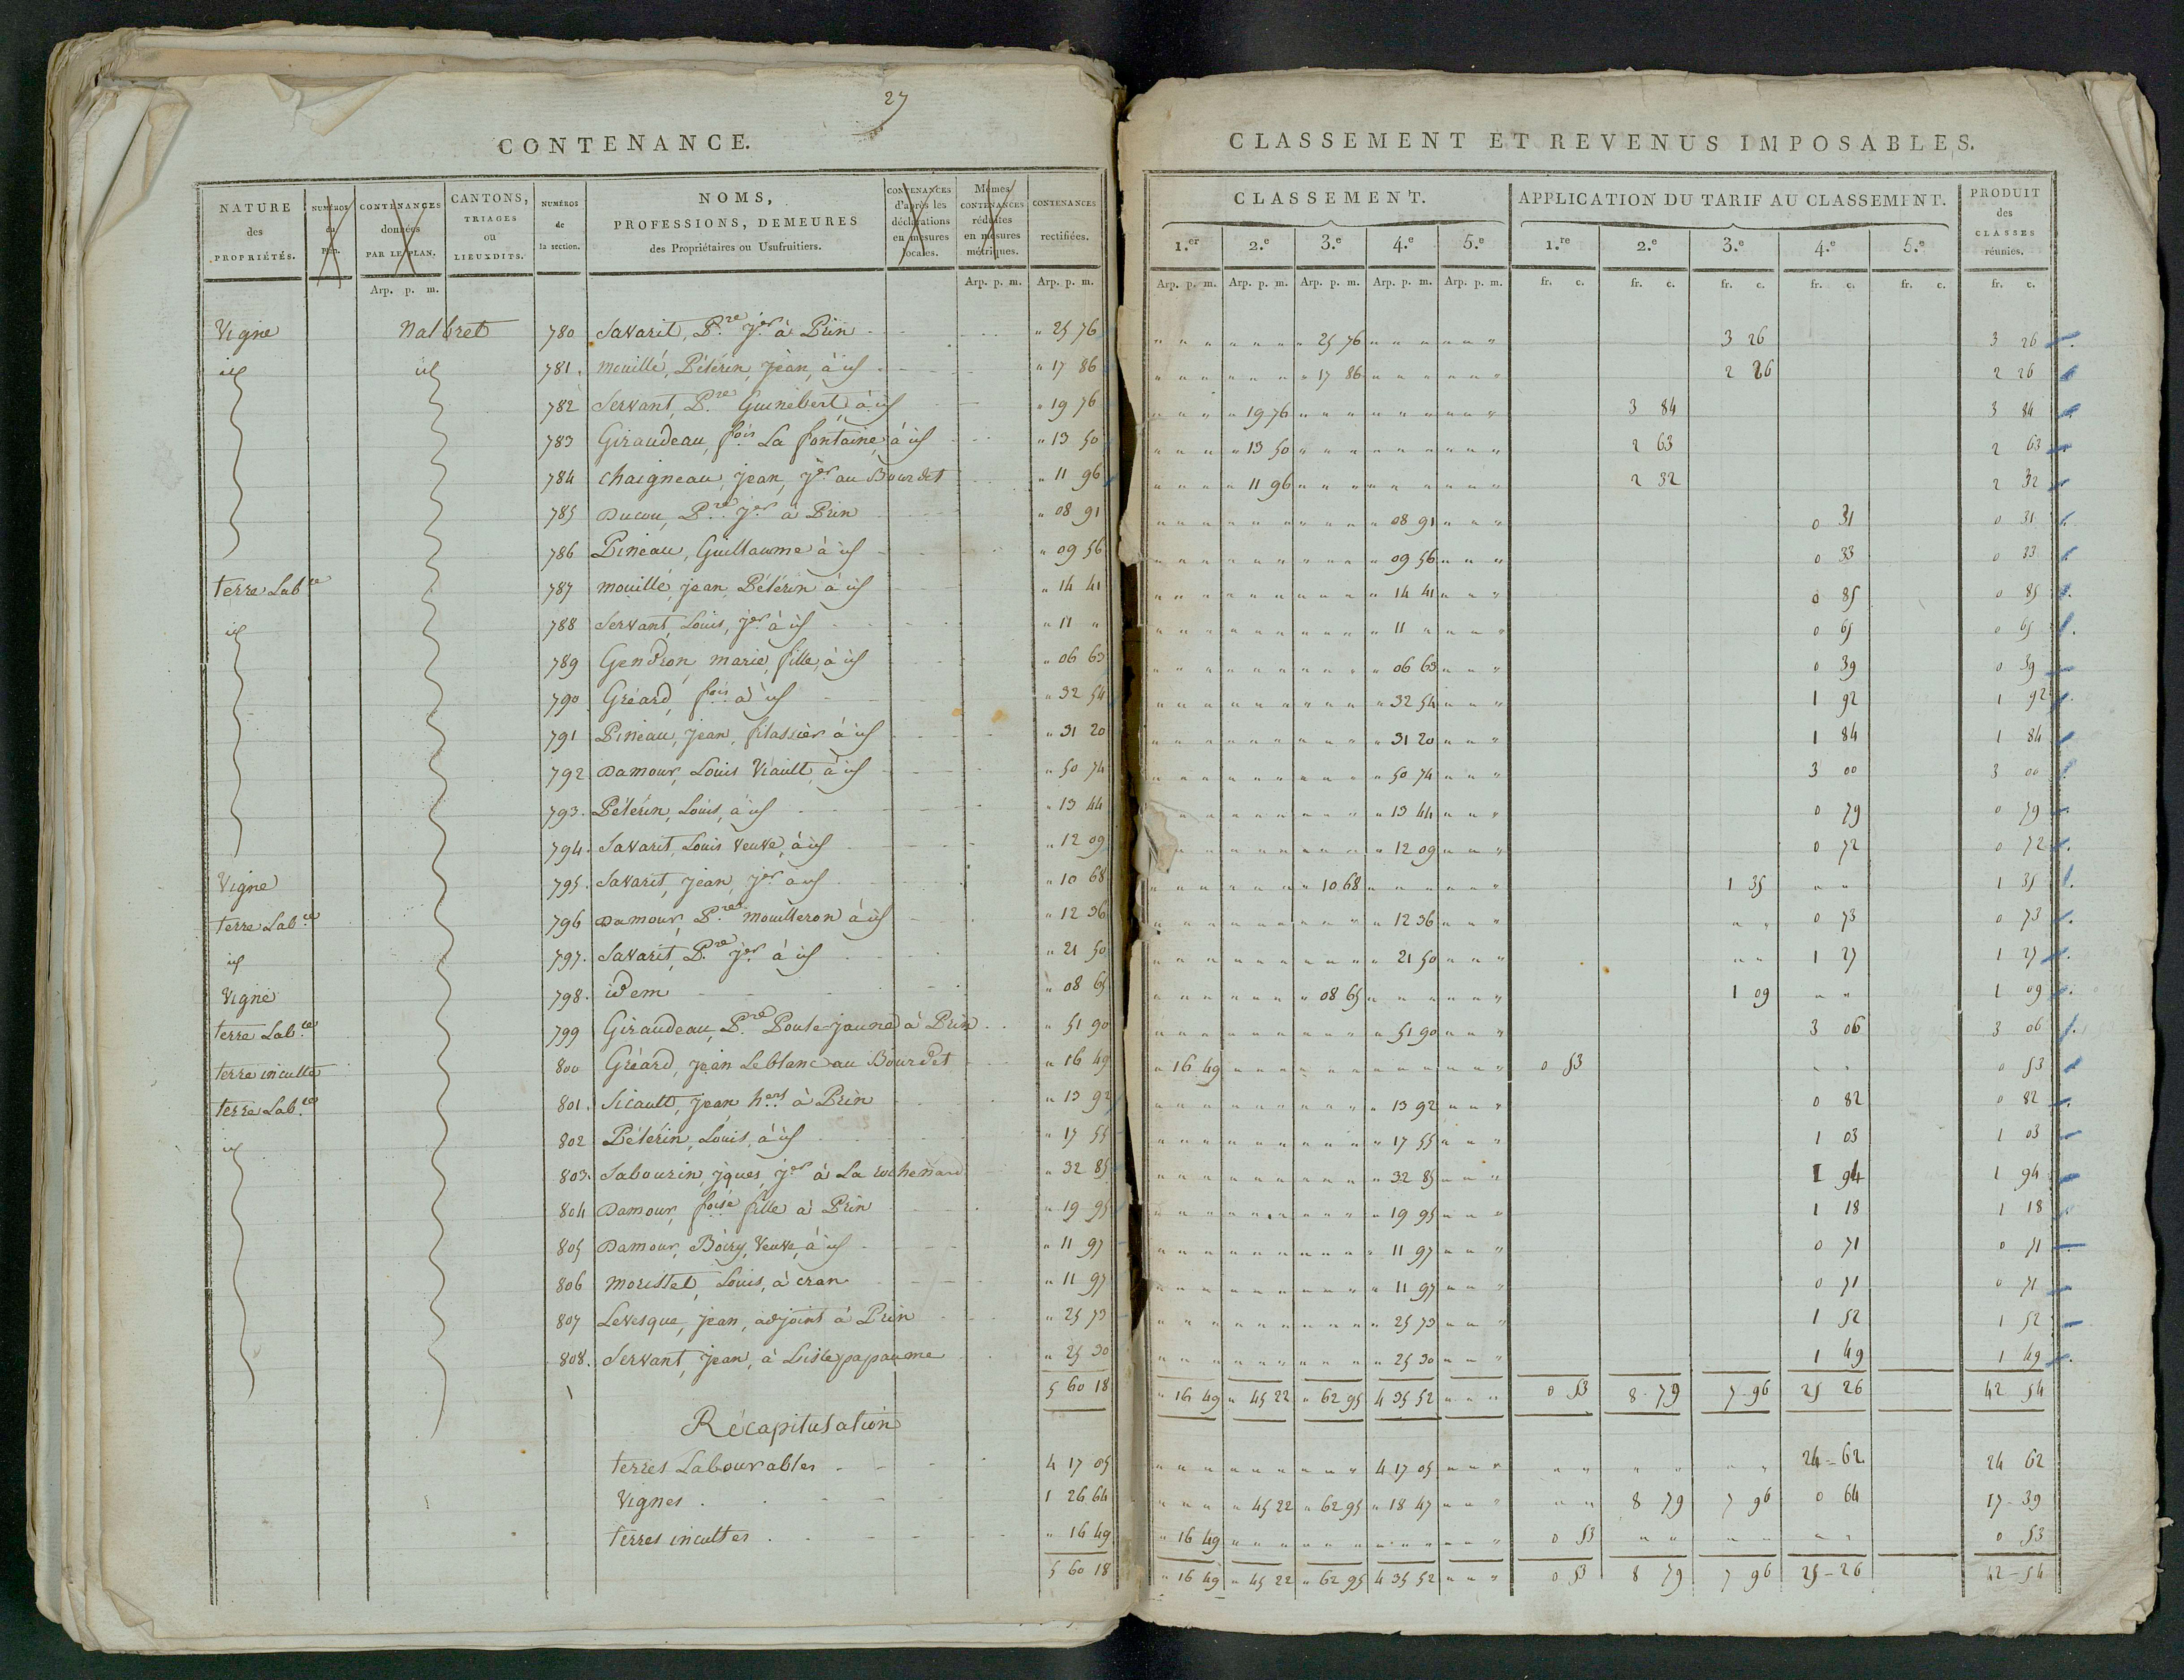 27
CONTENANCE.
NATURE des PROPRIÉTÉS. NUMÉROS du PLAN. CONTENANCES données PAR LE PLAN. CANTONS, TRIAGES ou LIEUXDITS. NUMÉROS de la section. NOMS, PROFESSIONS, DEMEURES des Propriétaires ou Usufruitiers. CONTENANCES d'après les déclarations en mesures locales. Mêmes CONTENANCES réduites en mesures métriques. CONTENANCES rectifiées.
Arp. p. m. Arp. p. m. Arp. p. m.
Vigne Nalbret 780 Savarit, P.re j.er à Prin " 25 76
id id 781. mouillé, Pélérin, jean, à id " 17 86
782 Servant, P.re Guinébert, à id " 19 76
783 Giraudeau, f.ois La fontaine, à id " 13 50
784 Chaigneau, jean, j.er au Bourdet " 11 96
785 Ducou, P.re j.er à Prin " 08 91
786 Pineau, Guillaume à id " 09 56
terre Lab.le 787 mouillé, jean, Pélérin à id " 14 41
id 788 Servant, Louis, j.er à id " 11 "
789 Gendron, marie, fille, à id " 06 63
790 Gréard, f.ois à id " 32 54
791 Pineau, jean, filassier à id " 31 20
792 Damour, Louis Viault, à id " 50 74
793. Pélérin, Louis, à id " 13 44
794. Savarit, Louis veuve, à id " 12 09
Vigne 795. Savarit, jean, j.er à id " 10 68
terre Lab.le 796 Damour, P.re mouilleron à id " 12 36
id 797. Savarit, P.re j.er à id " 21 50
Vigne 798. idem " 08 65
terre Lab.le 799 Giraudeau, P.re Poule-jaune à Prin " 51 90
terre inculte 800 Gréard, jean Leblanc au Bourdet " 16 49
terre Lab.le 801. Sicault, jean h.ers à Prin " 13 92
id 802 Pélérin, Louis, à id " 17 55
803. Sabourin, jques, j.er à La rochenard " 32 85
804 Damour, f.oise fille à Prin " 19 95
805 Damour, Boiry, Veuve, à id " 11 97
806 morisset, Louis, à cran " 11 97
807 Levesque, jean, adjoint à Prin " 25 73
808. Servant, jean, à Lisle papaume " 25 30
5 60 18
Récapitulation
terres Labourables 4 17 05
Vignes 1 26 64
terres incultes " 16 49
5 60 18
CLASSEMENT ET REVENUS IMPOSABLES.
CLASSEMENT. APPLICATION DU TARIF AU CLASSEMENT. PRODUIT des CLASSES réunies.
1.er 2.e 3.e 4.e 5.e 1.re 2.e 3.e 4.e 5.e
Arp. p. m. Arp. p. m. Arp. p. m. Arp. p. m. Arp. p. m. fr. c. fr. c. fr. c. fr. c. fr. c. fr. c.
" 25 76 3 26 3 26
" 17 86 2 26 2 26
" 19 76 3 84 3 84
" 13 50 2 63 2 63
" 11 96 2 32 2 32
" 08 91 0 31 0 31
" 09 56 0 33 0 33
" 14 41 0 85 0 85
" 11 " 0 65 0 65
" 06 63 0 39 0 39
" 32 54 1 92 1 92
" 31 20 1 84 1 84
" 50 74 3 00 3 00
" 13 44 0 79 0 79
" 12 09 0 72 0 72
" 10 68 1 35 " " 1 35
" 12 36 " " 0 73 0 73
" 21 50 " " 1 27 1 27
" 08 65 1 09 " " 1 09
" 51 90 3 06 3 06
" 16 49 0 53 " " 0 53
" 13 92 0 82 0 82
" 17 55 1 03 1 03
" 32 85 1 94 1 94
" 19 95 1 18 1 18
" 11 97 0 71 0 71
" 11 97 0 71 0 71
" 25 73 1 52 1 52
" 25 30 1 49 1 49
" 16 49 " 45 22 " 62 95 4 35 52 " " " 0 53 8 79 7 96 25 26 42 54
4 17 05 " " " " " " " " " 24 62 24 62
" 45 22 " 62 95 " 18 47 " " " " " 8 79 7 96 0 64 17 39
" 16 49 0 53 " " " " " " 0 53
" 16 49 " 45 22 " 62 95 4 35 52 " " " 0 53 8 79 7 96 25 26 42 54